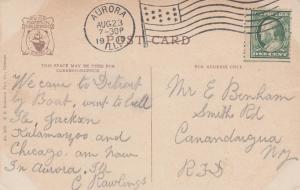 AURORA
AUG 23
7-30P
ILL.
POST CARD
THIS SPACE MAY BE USED FOR
CORRESPONDENCE
FOR ADDRESS ONLY
We came to Detroit
by Boat, went to
Jackson
Kalamazoo and
Chicago, am now
In Aurora, Ill
C Rawlings
Mr E Benham
Smiths Rd
Canandargua
NY
RFD
ONE CENT